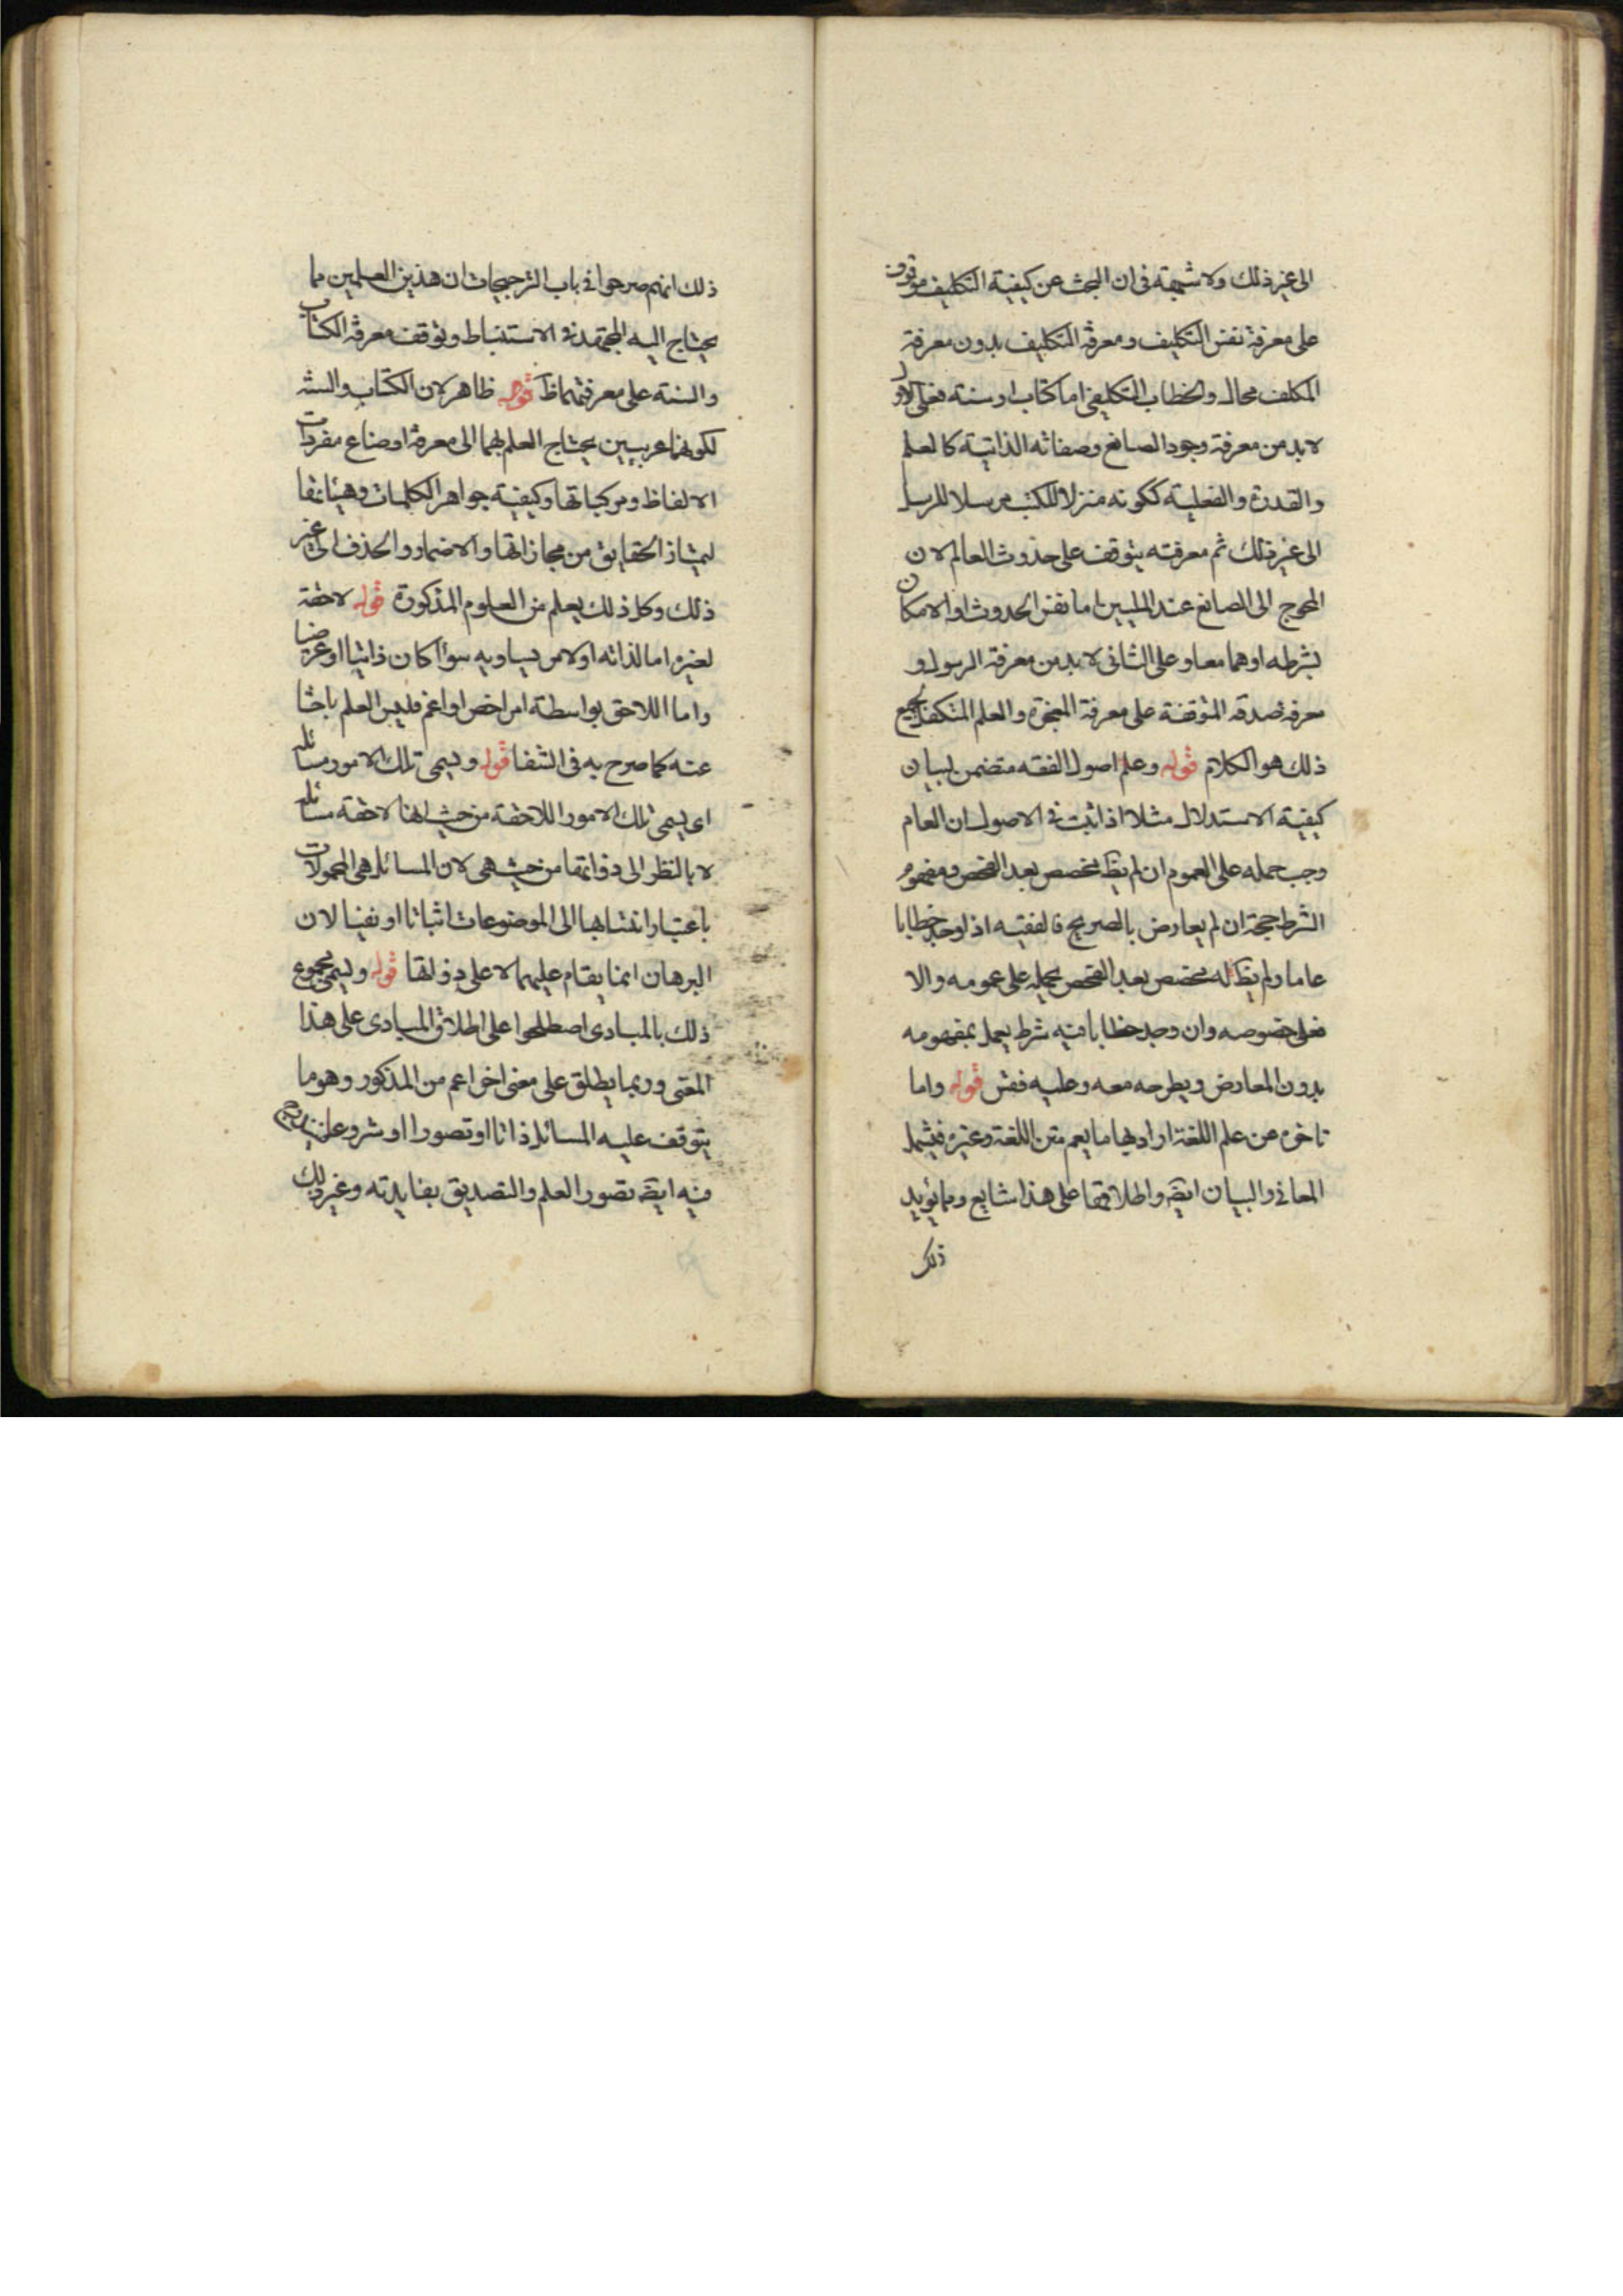 الى غير ذلك ولا شبهة فى ان البحث عن كيفية التكليف موقوف
على معرفة نفس التكليف ومعرفة التكليف بدون معرفة
المكلف محال والخطاب التكليفى اما كتاب او سنة فعلى الاول
لا بد من معرفة وجود الصانع وصفاته الذاتية كالعلم
والقدرة والفعلية ككونه منزلا للكتب مرسلا للرسل
الى غير ذلك ثم معرفته يتوقف على حدوث العالم لان
المحوج الى الصانع عند المليين اما نفس الحدوث او الامكان
بشرطه او هما معا وعلى الثانى لا بد من معرفة الرسول و
معرفة صدقه المتوقفة على معرفة المعجزة والعلم المتكفل بجميع
ذلك هو الكلام قوله وعلم اصول الفقه متضمن لبيان
كيفية الاستدلال مثلا اذا ثبت فى الاصول ان العام
وجب حمله على العموم ان لم يظ مخصص بعد الفحص ومفهوم
الشرط حجة ان لم يعارض بالصريح فالفقيه اذا وجد خطابا
عاما ولم يظ له مخصص بعد الفحص يحمله على عمومه والا
فعلى خصوصه وان وجد خطابا فيه شرط يعمل بمفهومه
بدون المعارض ويطرحه معه وعليه فقس قوله واما
تاخره عن علم اللغة اراد بها ما يعم متن اللغة وغيره فيشمل
المعانى والبيان ايضا واطلاقها على هذا شايع ومما يؤيد
ذلك
ذلك انهم صرحوا فى باب الترجيحات ان هذين العلمين مما
يحتاج اليه المجتهد فى الاستنباط وتوقف معرفة الكتاب
والسنة على معرفتهما ظ قوله ظاهر لان الكتاب والسنة
لكونهما عربيين يحتاج العلم بهما الى معرفة اوضاع مفردات
الالفاظ ومركباتها وكيفية جواهر الكلمات وهيئاتها
ليمتاز الحقايق من مجازاتها والاضمار والحذف الى غير
ذلك وكل ذلك يعلم من العلوم المذكورة قوله لاحقة
لغيره اما لذاته او لامر يساويه سوآ كان ذاتيا او عرضيا
واما اللاحق بواسطة امر اخص او اعم فليس العلم باحثا
عنه كما صرح به فى الشفا قوله ويسمى تلك الامور مسائله
اى يسمى تلك الامور اللاحقة من حيث انها لاحقة مسائله
لا بالنظر الى ذواتها من حيث هى لان المسائل هى المحمولات
باعتبار انتسابها الى الموضوعات اثباتا او نفيا لان
البرهان انما يقام عليهما لا على ذواتها قوله ويسمى مجموع
ذلك بالمبادى اصطلحوا على اطلاق المبادى على هذا
المعنى وربما يطلق على معنى اخر اعم من المذكور وهو ما
يتوقف عليه المسائل ذاتا او تصورا او شروعا فيندرج
فيه ايضا تصور العلم والتصديق بفايدته وغير ذلك